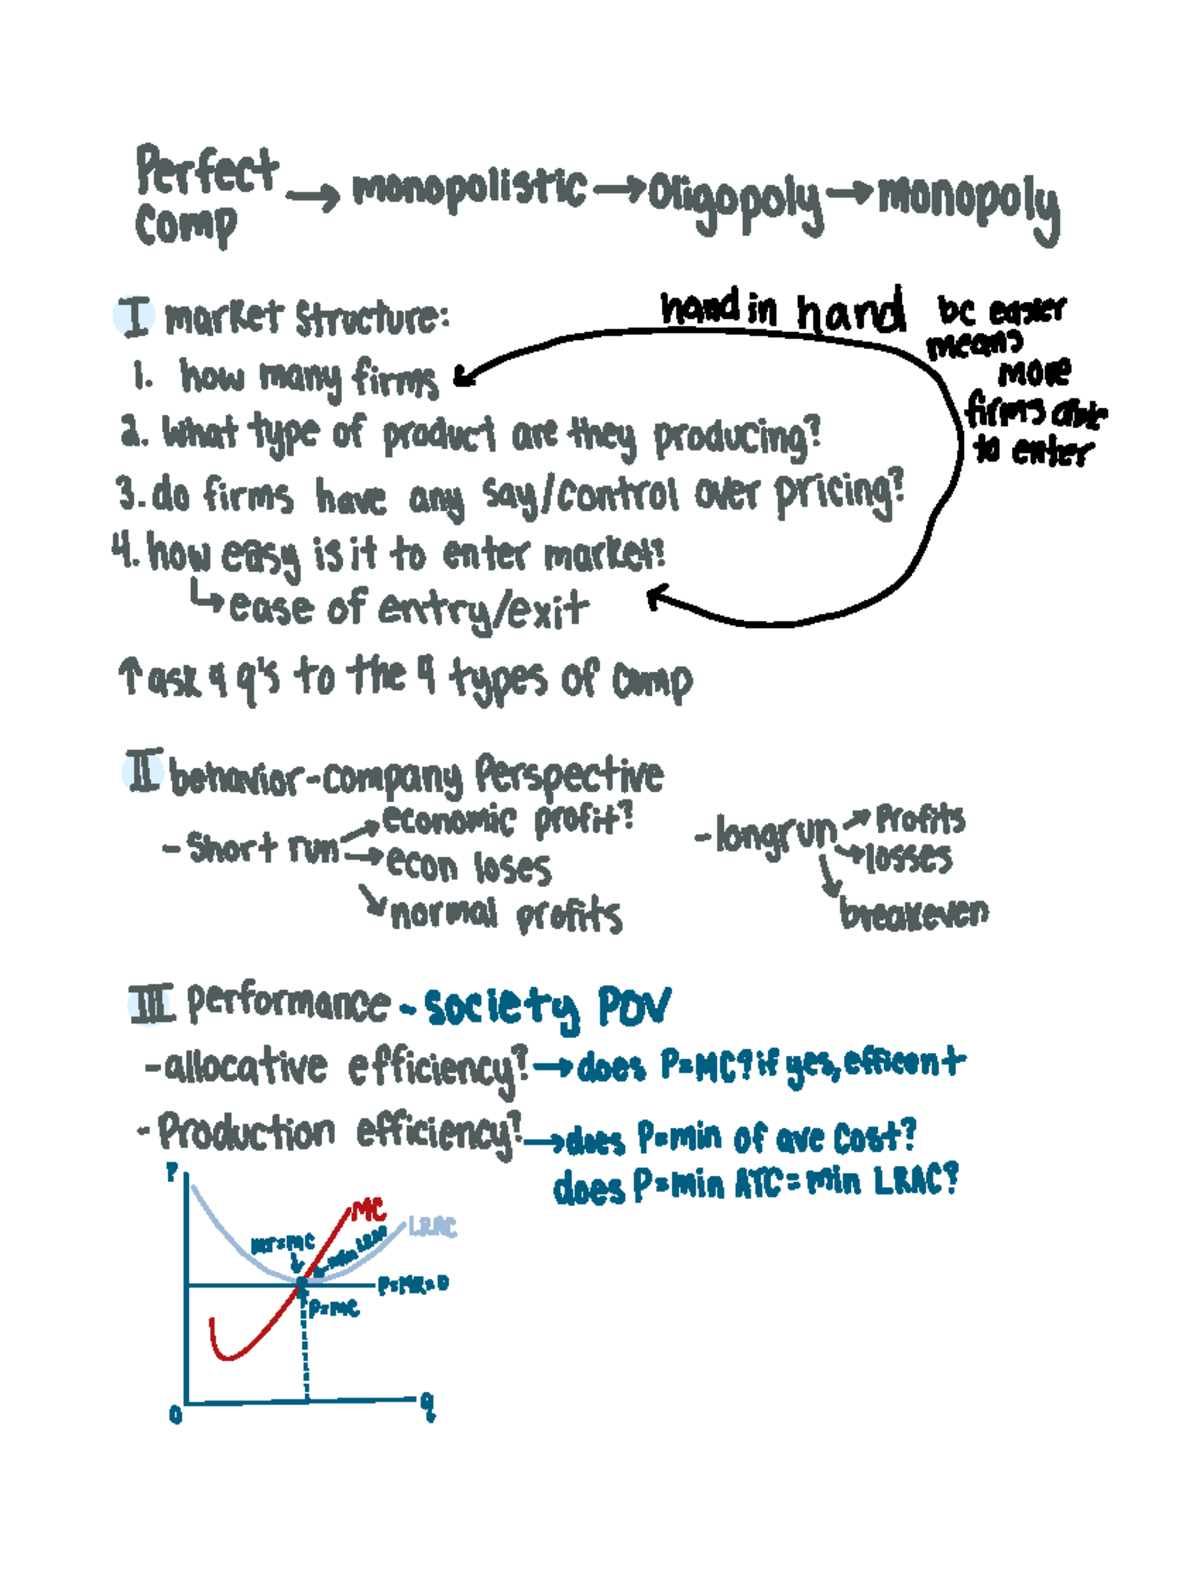 Perfect comp → monopolistic → Oligopoly → monopoly
I market structure:
1. how many firms
hand in hand
bc easier
means
more
firms able
to enter
2. What type of product are they producing?
3. do firms have any say/control over pricing?
4. how easy is it to enter market?
↳ ease of entry/exit
↑ ask 4 q's to the 4 types of comp
II behavior - company perspective
- Short run → economic profit?
→ econ loses
↘ normal profits
- longrun → Profits
→ losses
↘ breakeven
III performance - society POV
- allocative efficiency? → does P=MC? if yes, efficent
- Production efficiency? → does P=min of ave cost?
does P=min ATC=min LRAC?
P
MC
LRAC
mr=mc
min LRAC
P=MR=D
P=MC
0
q